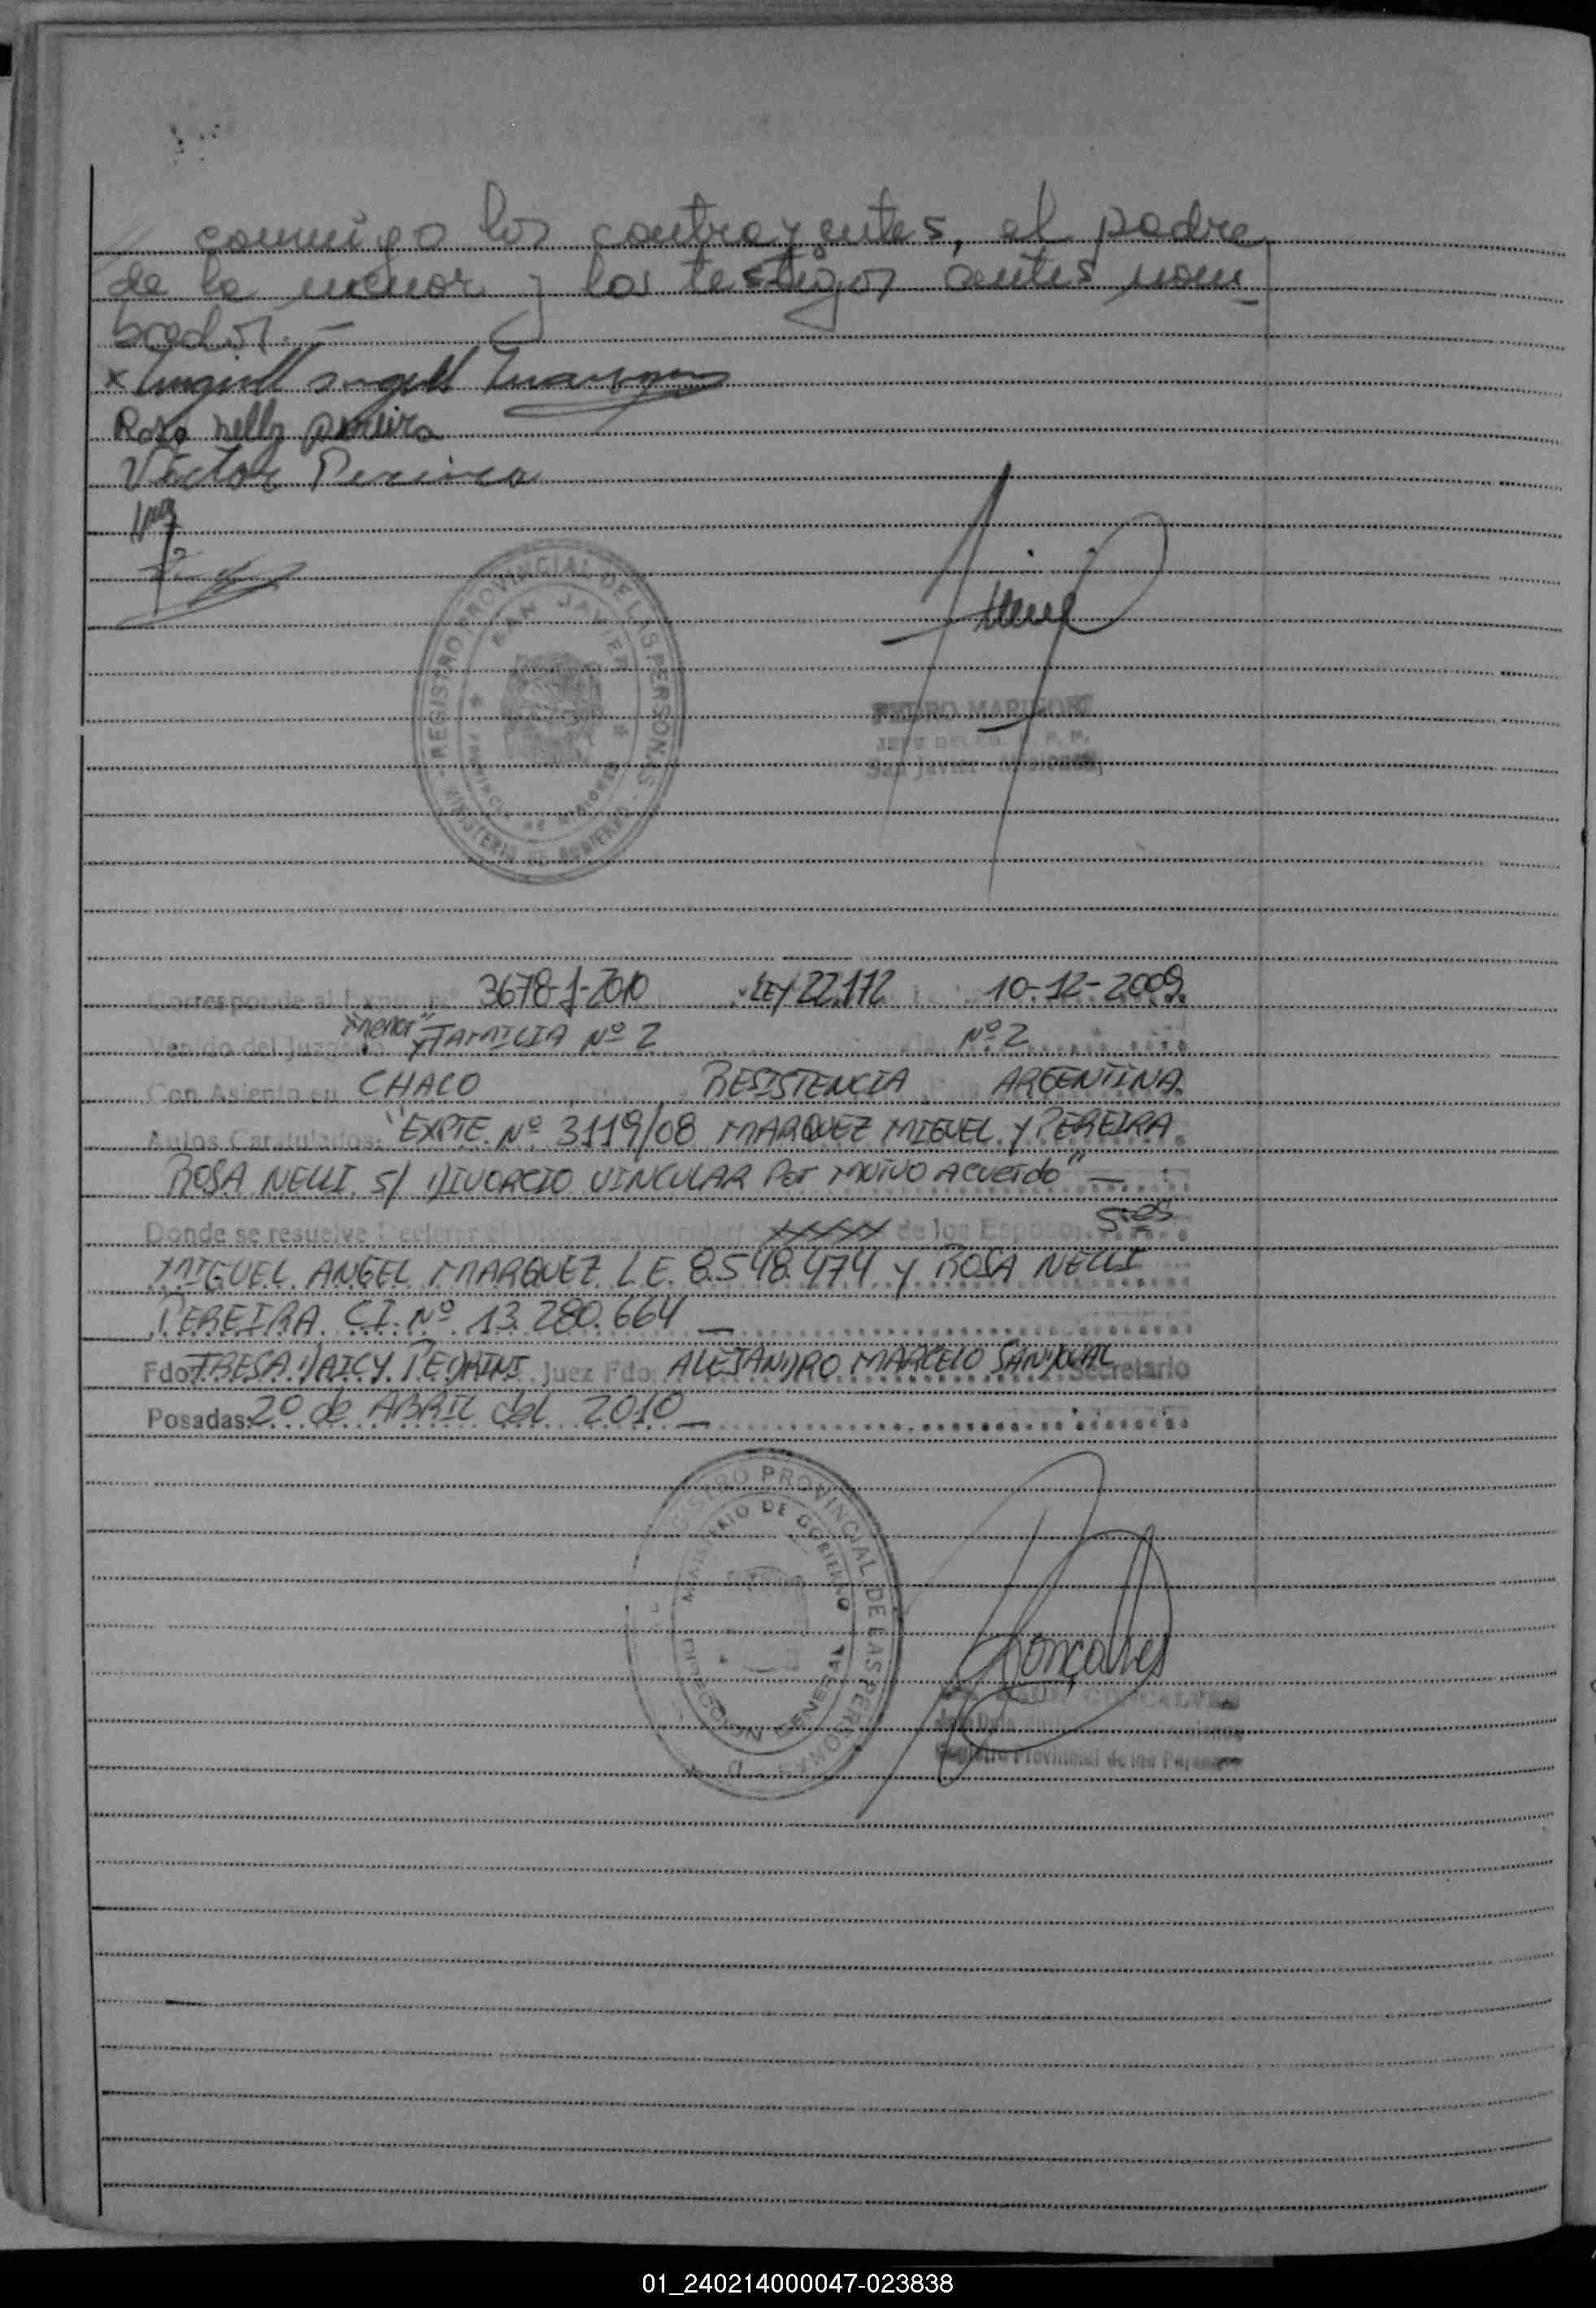 conmigo los contrayentes, el padre
de la menor y los testigos antes nom
brados.-
x Miguel Angel Marquez
Rosa nelly pereira
Victor Pereira
REGISTRO PROVINCIAL DE LAS PERSONAS
SAN JAVIER
PROVINCIA DE MISIONES
MINISTERIO DE GOBIERNO
PEDRO MARIGONI
JEFE DELEG. P. P.
San Javier - Misiones
Corresponde al Expte. n° 3678-J-2010 LEY 22.172 10-12-2009
Venido del Juzgado "menor" y FAMILIA Nº 2 Nº 2
Con Asiento en CHACO RESISTENCIA ARGENTINA
Autos Caratulados: "EXPTE. Nº 3119/08 MARQUEZ MIGUEL Y PEREIRA
ROSA NELLI S/ DIVORCIO VINCULAR Por MUTUO ACUERdo" —
Donde se resuelve Declarar el Divorcio Vincular: xxxxx de los Esposos Sres
MIGUEL ANGEL MARQUEZ L.E. 8.548.474 Y ROSA NELLI
PEREIRA CI. Nº 13.280.664 —
Fdo: TRESA DAICY PEDRINI Juez Fdo: ALEJANDRO MARCELO SANDOVAL Secretario
Posadas: 20 de ABRIL del 2010 —
REGISTRO PROVINCIAL DE LAS PERSONAS
MINISTERIO DE GOBIERNO
DIRECCION GENERAL
Gonçalves
GONCALVES
Registro Provincial de las Personas
01_240214000047-023838